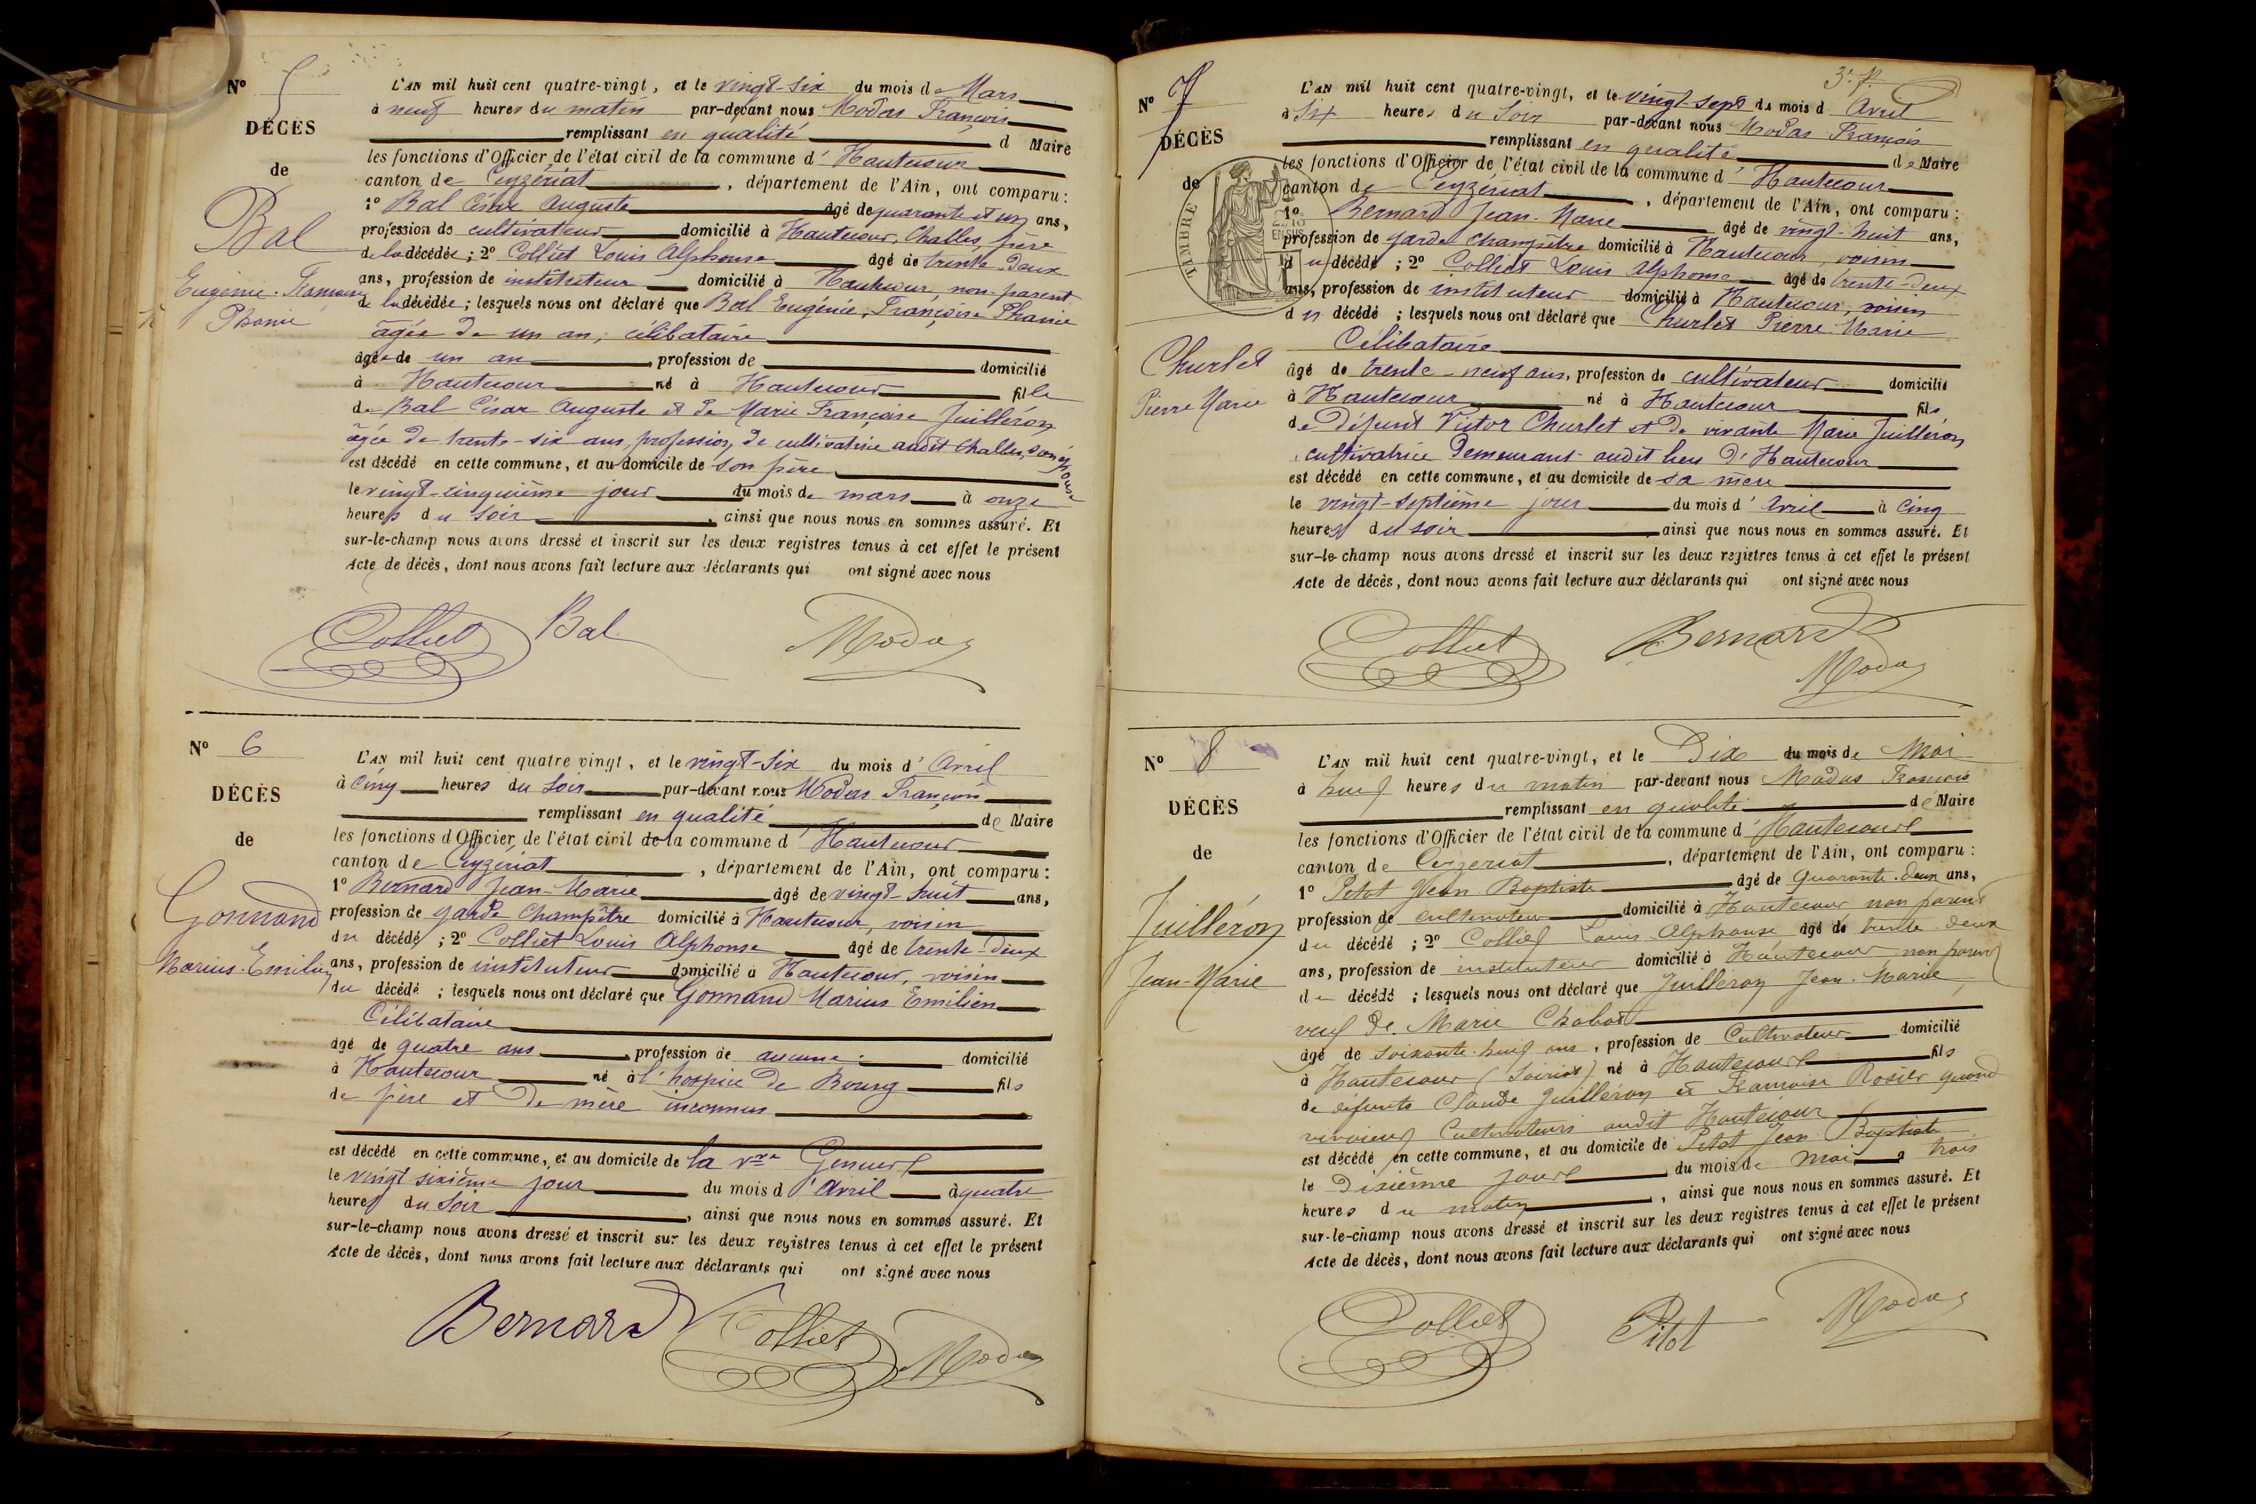 Nº 5
DÉCÈS
de
Bal
Eugénie-Françoise
Phanie
L'AN mil huit cent quatre-vingt, et le vingt-six du mois de Mars
à neuf heures du matin par-devant nous Modas François
remplissant en qualité d Maire
les fonctions d'Officier de l'état civil de la commune d' Hautecour
canton de Ceyzériat, département de l'Ain, ont comparu :
1º Bal César Auguste âgé de quarante et un ans,
profession de cultivateur domicilié à Hautecour, Challes, père
de la décédée ; 2º Colliet Louis Alphonse âgé de trente-deux
ans, profession de instituteur domicilié à Hautecour non parent
de la décédée ; lesquels nous ont déclaré que Bal Eugénie, Françoise Phanie
âgée de un an, célibataire
âgée de un an, profession de domicilié
à Hautecour né à Hautecour fille
de Bal César Auguste et de Marie Françoise Juilléron
âgée de trente-six ans, profession, de cultivatrice audit Challes, son épouse
est décédé en cette commune, et au domicile de son père
le vingt-cinquième jour du mois de mars à onze
heures du soir, ainsi que nous nous en sommes assuré. Et
sur-le-champ nous avons dressé et inscrit sur les deux registres tenus à cet effet le présent
Acte de décès, dont nous avons fait lecture aux déclarants qui ont signé avec nous
Colliet Bal Modas
Nº 6
DÉCÈS
de
Gonnand
Marius-Emilien
L'AN mil huit cent quatre vingt, et le vingt-six du mois d' Avril
à cinq heures du soir par-devant nous Modas François
remplissant en qualité de Maire
les fonctions d'Officier de l'état civil de la commune d' Hautecour
canton de Ceyzériat, département de l'Ain, ont comparu :
1º Bernard Jean-Marie âgé de vingt-huit ans,
profession de garde champêtre domicilié à Hautecour, voisin
du décédé ; 2º Colliet Louis Alphonse âgé de trente-deux
ans, profession de instituteur domicilié à Hautecour, voisin
du décédé ; lesquels nous ont déclaré que Gonnand Marius Emilien
Célibataire
âgé de quatre ans, profession de aucune domicilié
à Hautecour né à l'hospice de Bourg fils
de père et de mère inconnus
est décédé en cette commune, et au domicile de la vve
le vingt sixième jour du mois d' Avril à quatre
heures du soir, ainsi que nous nous en sommes assuré. Et
sur-le-champ nous avons dressé et inscrit sur les deux registres tenus à cet effet le présent
Acte de décès, dont nous avons fait lecture aux déclarants qui ont signé avec nous
Bernard Colliet Modas
Nº 7
DÉCÈS
de
TIMBRE
Churlet
Pierre Marie
L'AN mil huit cent quatre-vingt, et le vingt-sept du mois d Avril
à Six heures du Soir par-devant nous Modas François
remplissant en qualité de Maire
les fonctions d'Officier de l'état civil de la commune d' Hautecour
canton de Ceyzériat, département de l'Ain, ont comparu :
1º Bernard Jean-Marie âgé de vingt-huit ans,
profession de garde champêtre domicilié à Hautecour, voisin
du décédé ; 2º Colliet Louis Alphonse âgé de trente-deux
ans, profession de instituteur domicilié à Hautecour, voisin
du décédé ; lesquels nous ont déclaré que Churlet Pierre Marie
Célibataire
âgé de trente-neuf ans, profession de cultivateur domicilié
à Hautecour né à Hautecour fils
de défunt Victor Churlet et de vivante Marie Juilléron
cultivatrice demeurant audit lieu d'Hautecour
est décédé en cette commune, et au domicile de sa mère
le vingt-septième jour du mois d' Avril à cinq
heures du soir, ainsi que nous nous en sommes assuré. Et
sur-le-champ nous avons dressé et inscrit sur les deux registres tenus à cet effet le présent
Acte de décès, dont nous avons fait lecture aux déclarants qui ont signé avec nous
Colliet Bernard
Modas
Nº 8
DÉCÈS
de
Juilléron
Jean-Marie
L'AN mil huit cent quatre-vingt, et le Dix du mois de Mai
à heures du matin par-devant nous Modas François
remplissant en qualité de Maire
les fonctions d'Officier de l'état civil de la commune d' Hautecour
canton de Ceyzeriat, département de l'Ain, ont comparu :
1º Pitot Jean Baptiste âgé de quarante-deux ans,
profession de cultivateur domicilié à Hautecour non parent
du décédé ; 2º Colliet Louis Alphonse âgé de trente-deux
ans, profession de instituteur domicilié à Hautecour non parent
du décédé ; lesquels nous ont déclaré que Juilleron Jean-Marie,
veuf de Marie Chabod
âgé de ans, profession de Cultivateur domicilié
à Hautecour né à Hautecour fils
de défunts Claude Juilléron et Françoise Rosier quand
vivaient Cultivateurs audit Hautecour
est décédé en cette commune, et au domicile de Pitot Jean Baptiste
le Dixième jour du mois de mai à trois
heures du matin, ainsi que nous nous en sommes assuré. Et
sur-le-champ nous avons dressé et inscrit sur les deux registres tenus à cet effet le présent
Acte de décès, dont nous avons fait lecture aux déclarants qui ont signé avec nous
Colliet Pitot Modas